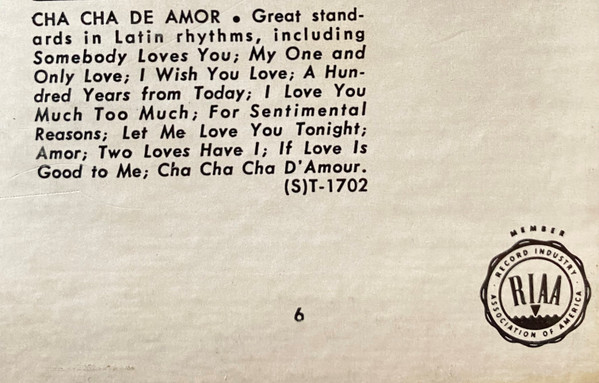 CHA CHA DE AMOR • Great stand-
ards in Latin rhythms, including
Somebody Loves You; My One and
Only Love; I Wish You Love; A Hun-
dred Years from Today; I Love You
Much Too Much; For Sentimental
Reasons; Let Me Love You Tonight;
Amor; Two Loves Have I; If Love Is
Good to Me; Cha Cha Cha D'Amour.
(S)T-1702
MEMBER
RECORD INDUSTRY
RIAA
ASSOCIATION OF AMERICA
6